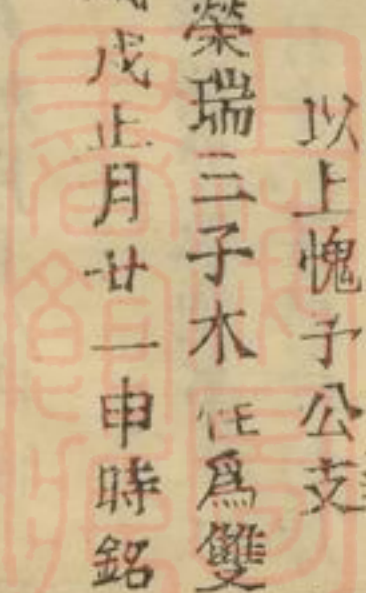 以上愧予公支
榮瑞三子木 性爲雙
戊正月廿一申時銘